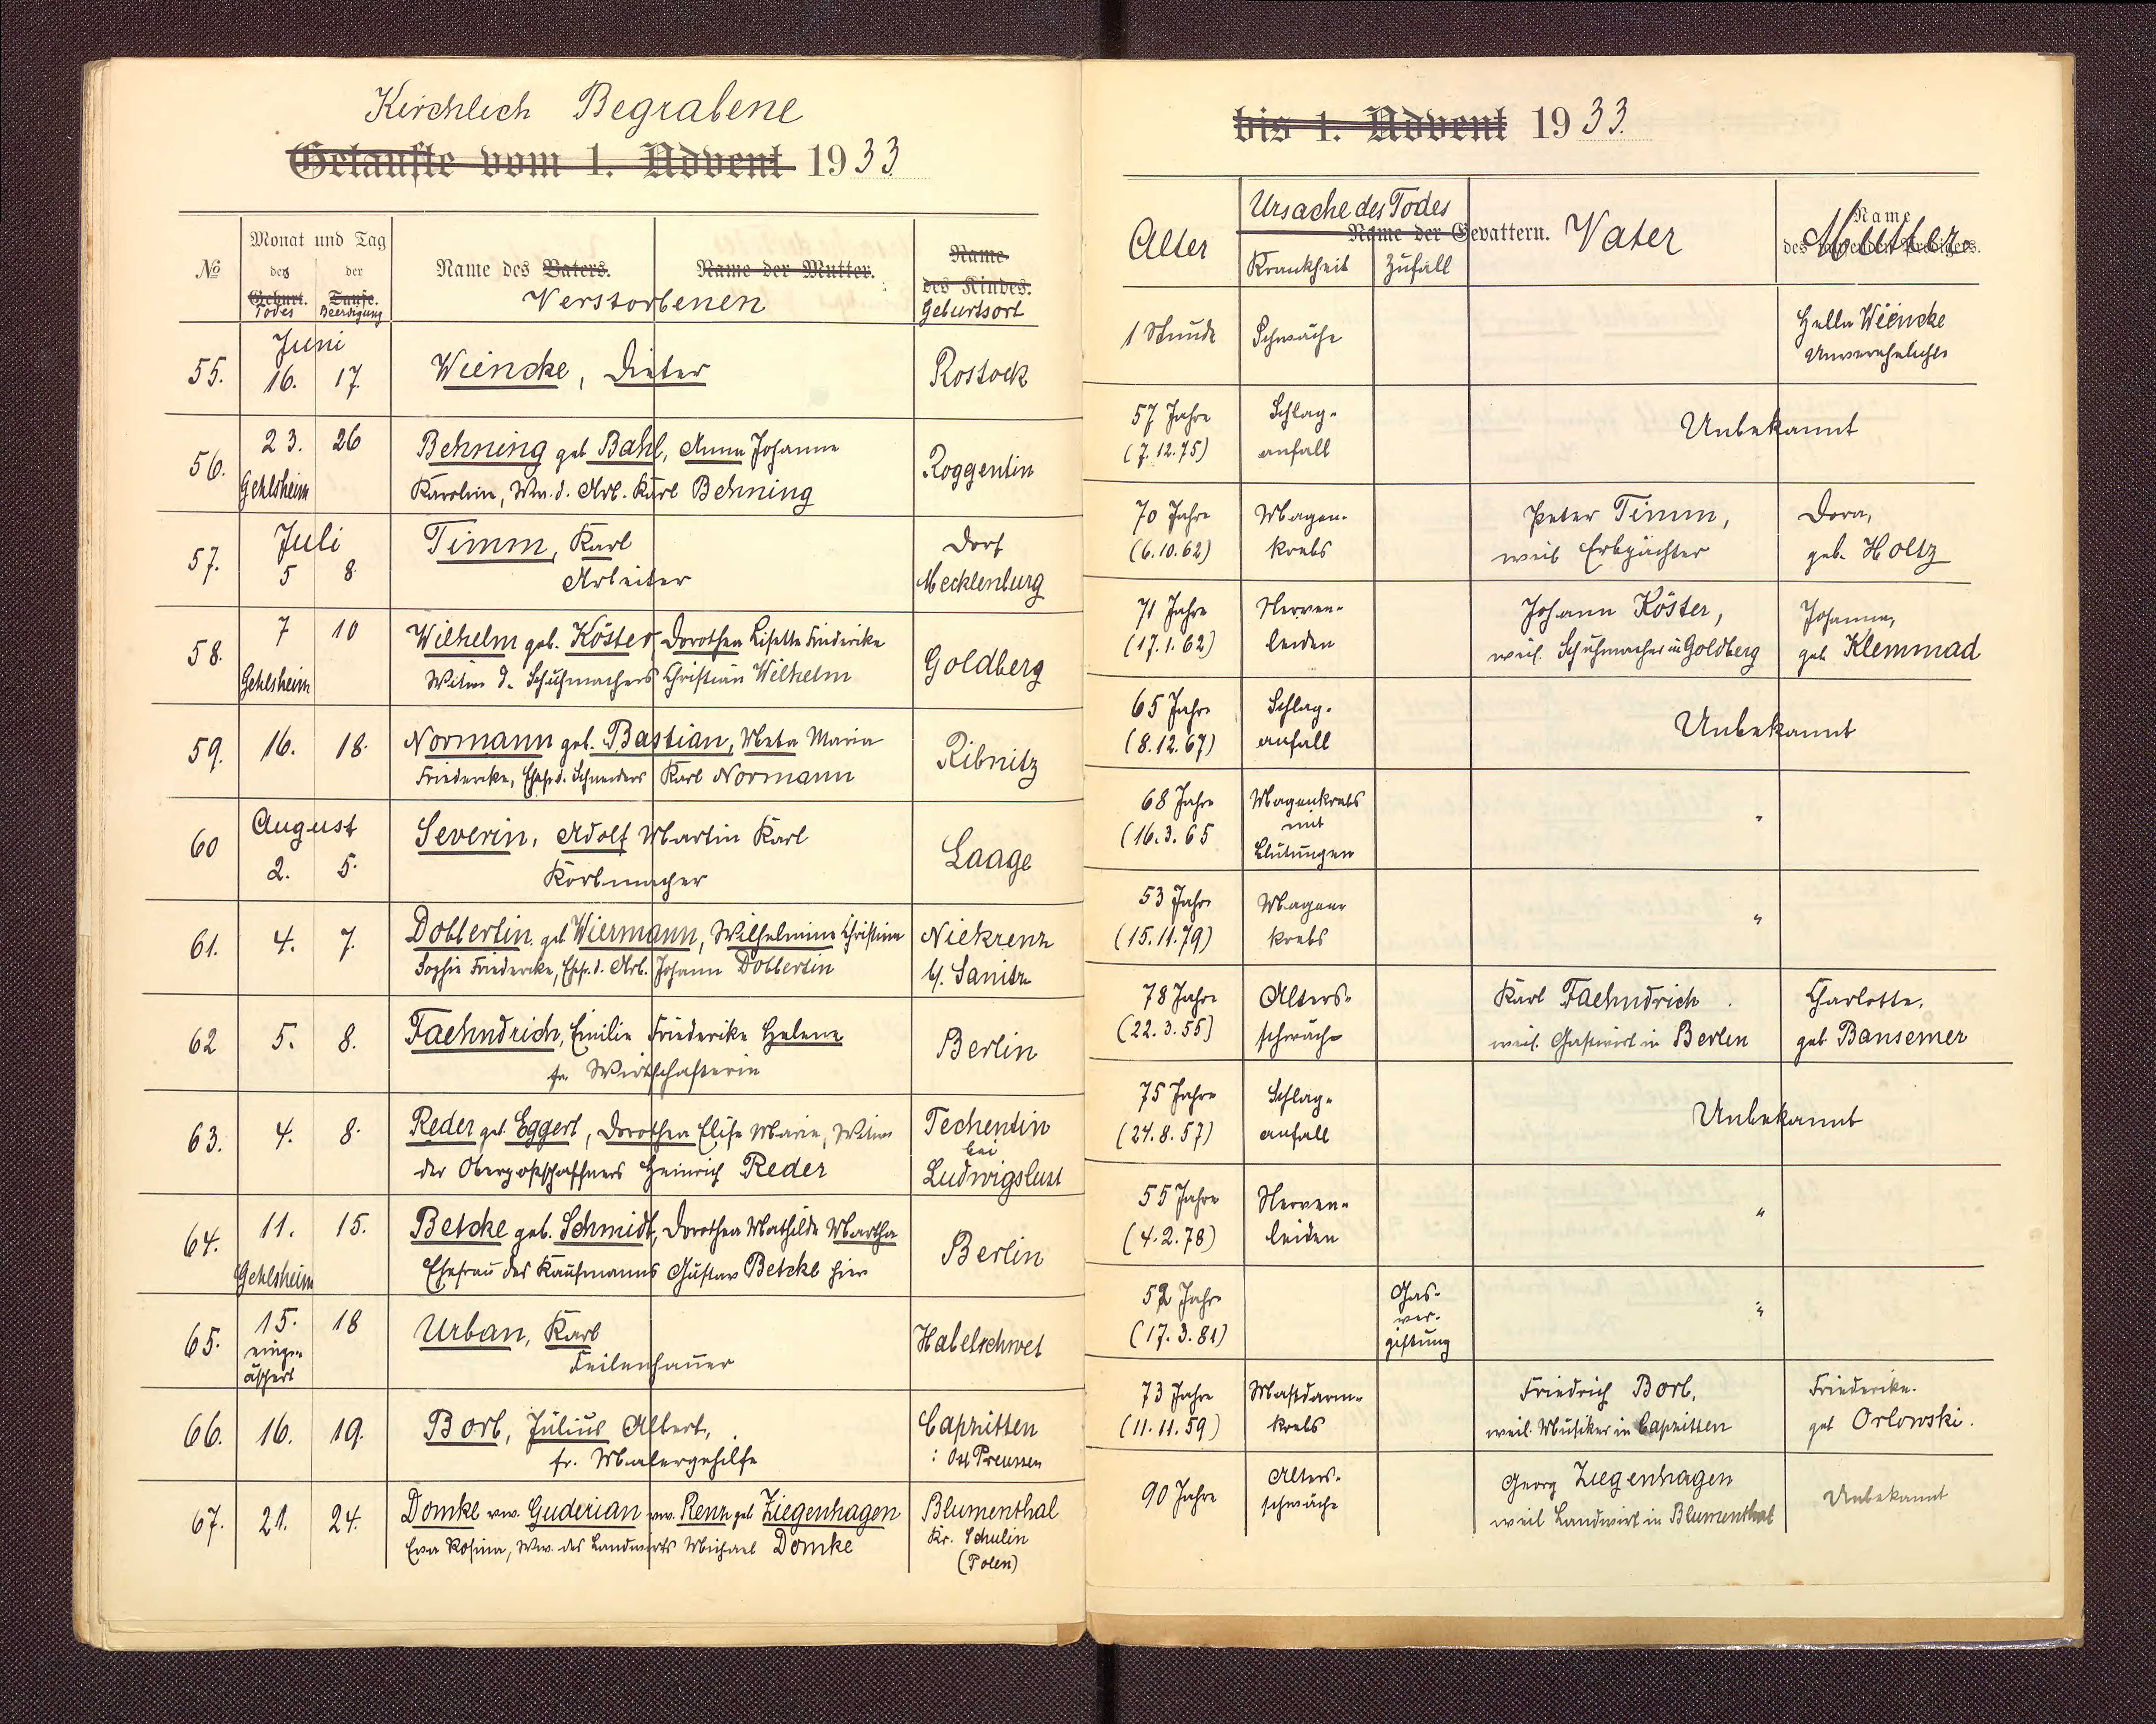 Kirchlich Begrabene
Getaufte vom 1. Advent 1933.
№
Monat und Tag
des
der
Geburt.
Taufe.
Todes
Beerdigung
Name des Vaters.
Name der Mutter.
Verstorbenen
Name
des Kindes.
Geburtsort
55.
Juni
16. 17
Wiencke, Dieter
Rostock
56.
23. 26
Gehlsheim
Behning geb. Bahl, Anna Johanna
Karolina, Ww. d. Arb. Karl Behning
Roggentin
57.
Juli
5 8.
Timm, Karl
Arbeiter
Dorf
Mecklenburg
58.
7 10
Gehlsheim
Wilhelm geb. Köster Dorothea Lisette Friederike
Witwe d. Schuhmachers Christian Wilhelm
Goldberg
59.
16. 18.
Normann geb. Bastian, Meta Maria
Friedericke, Ehefr. d. Schneiders Karl Normann
Ribnitz
60
August
2. 5.
Severin, Adolf Martin Karl
Korbmacher
Laage
61.
4. 7.
Dobbertin geb. Wiermann, Wilhelmine Christina
Sophie Friedericke, Ehefr. d. Arb. Johann Dobbertin
Niekrenz
b/. Sanitz
62
5. 8.
Faehndrich, Emilie Friederike Helene
fr. Wirtschafterin
Berlin
63.
4. 8.
Reder geb. Eggert, Dorothea Elise Marie, Witwe
des Oberpostschaffners Heinrich Reder
Techentin
bei
Ludwigslust
64.
11. 15.
Gehlsheim
Betcke geb. Schmidt, Dorothea Mathilde Martha
Ehefrau des Kaufmanns Gustav Betcke hier
Berlin
65.
15. 18
einge-
äschert
Urban, Karl
Feilenhauer
Habelschwet
66.
16. 19.
Borb, Julius Albert,
fr. Malergehilfe
Capritten
: Ost Preussen
67.
21. 24.
Domke vw. Guderian vw. Renz geb. Ziegenhagen
Eva Rosina, Ww. des Landwirts Michael Domke
Blumenthal
Kr. Schulin
(Polen)
bis 1. Advent 1933.
Alter
Ursache des Todes
Name der Gevattern.
Krankheit
Zufall
Vater
Name
Mutter
1 Stunde
Schwäche
Hella Wiencke
Unverehelicht
57 Jahre
(7.12.75)
Schlag-
anfall
Unbekannt
70 Jahre
(6.10.62)
Magen-
krebs
Peter Timm,
weil Erbpächter
Dora,
geb. Holtz
71 Jahre
(17.1.62)
Nerven-
leiden
Johann Köster,
weil. Schuhmacher in Goldberg
Johanna,
geb Klemmad
65 Jahre
(8.12.67)
Schlag-
anfall
Unbekannt
68 Jahre
(16.3.65
Magenkrebs
mit
Blutungen
"
53 Jahre
(15.11.79)
Magen-
krebs
"
78 Jahre
(22.3.55)
Alters-
schwäche
Karl Faehndrich
weil. Gastwirt in Berlin
Charlotte,
geb Bansemer
75 Jahre
(24.8.57)
Schlag-
anfall
Unbekannt
55 Jahre
(4.2.78)
Nerven-
leiden
"
52 Jahre
(17.3.81)
Gas-
ver-
giftung
"
73 Jahre
(11.11.59)
Mastdarm-
krebs
Friedrich Borb,
weil. Musiker in Capritten
Friederike.
geb Orlowski.
90 Jahre
Alters-
schwäche
Georg Ziegenhagen
weil Landwirt in Blumenthal
Unbekannt